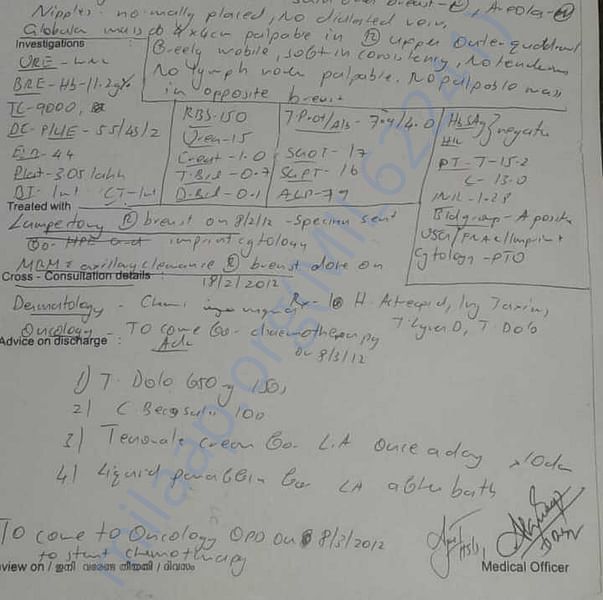 Nipples: normally placed, No dilated veins, Areola - (N)
Globular mass of 4x4cm palpable in (R) upper outer quadrant
freely mobile, soft in consistency, No tenderness
No lymph node palpable. No palpable mass
in opposite breast
Investigations
URE -
BRE - Hb - 11.2g%
TC - 9000,
DC - P/L/E - 55/43/2
ESR - 44
Plat - 3.05 lakh
BT - 1'
CT -
RBS - 150
Urea - 15
Creat - 1.0
T. Bil - 0.7
D. Bil - 0.1
T.Prot/Alb - 7.4/4.0
SGOT - 17
SGPT - 16
ALP - 79
HbSAg
HIV } negative
PT - T - 15.2
C - 13.0
INR - 1.28
Bldgroup - A positive
USG/FNAC/Imprint
Cytology - PTO
Treated with
Lumpectomy (R) breast on 8/2/12 - Specimen sent
for HPE and imprint cytology
MRM c axillary clearance (R) breast done on
18/2/2012
Cross - Consultation details :
Dermatology - Rx -
Oncology - To come for chemotherapy
on 8/3/12
T. Dolo
Advice on discharge :
Adv
1) T. Dolo 650 mg 1 SOS
2) C. Becosule 1 OD
3) Tenovate cream for L.A once a day x 10 days
4) Liquid paraffin for LA after bath
To come to Oncology OPD on 8/3/2012
to start chemotherapy
Medical Officer
view on / ഇനി വരേണ്ട തീയതി / ദിവസം
milaap.org